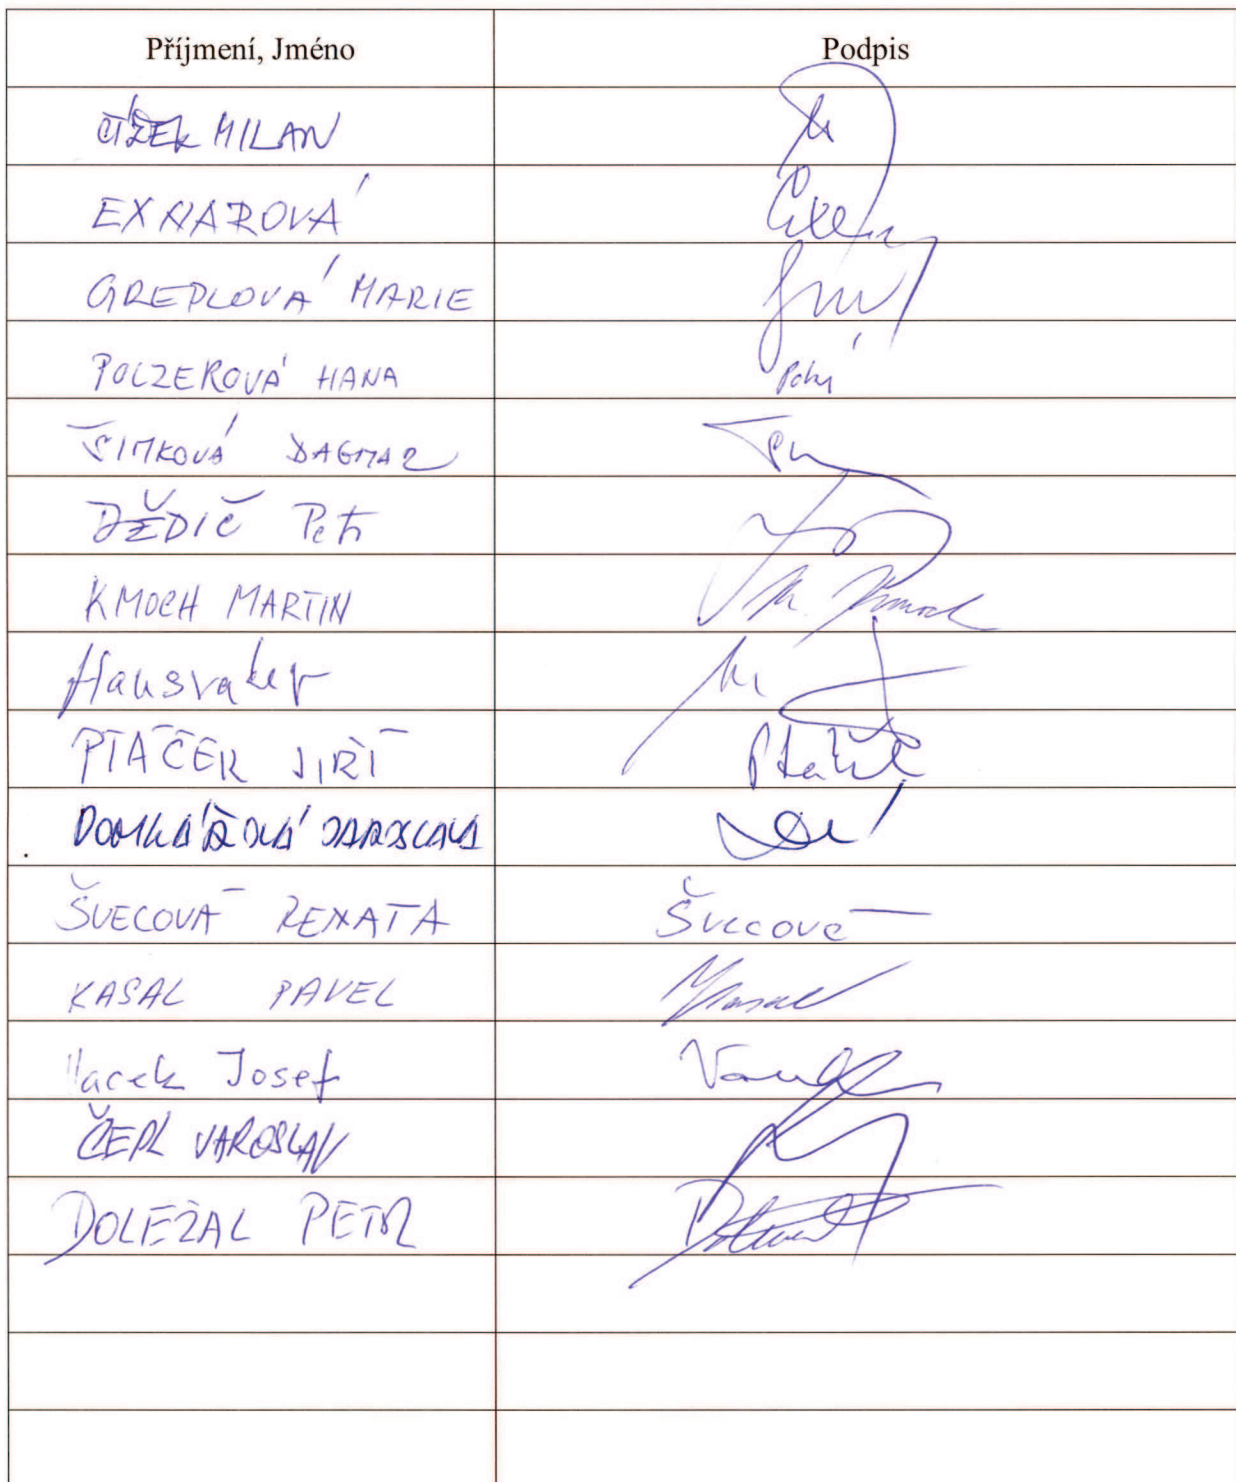 Příjmení, Jméno Podpis
ČÍŽEK MILAN
EXNAROVÁ
GREPLOVÁ MARIE
POLZEROVÁ HANA
ŠIMKOVÁ DAGMAR
DĚDIČ Petr
KMOCH MARTIN M. Kmoch
Hausvater
PTÁČEK JIŘÍ Ptáček
JAROSLAVA
ŠVECOVÁ RENATA Švecová
KASAL PAVEL Kasal
Vacek Josef
ČEPL JAROSLAV
DOLEŽAL PETR